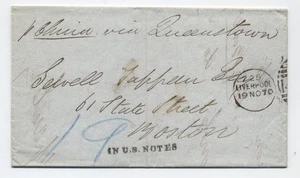 p China via Queenstown
Sewell Tappan Esq
61 State Street
Boston
LIVERPOOL
19 NO 70
19
IN U.S. NOTES